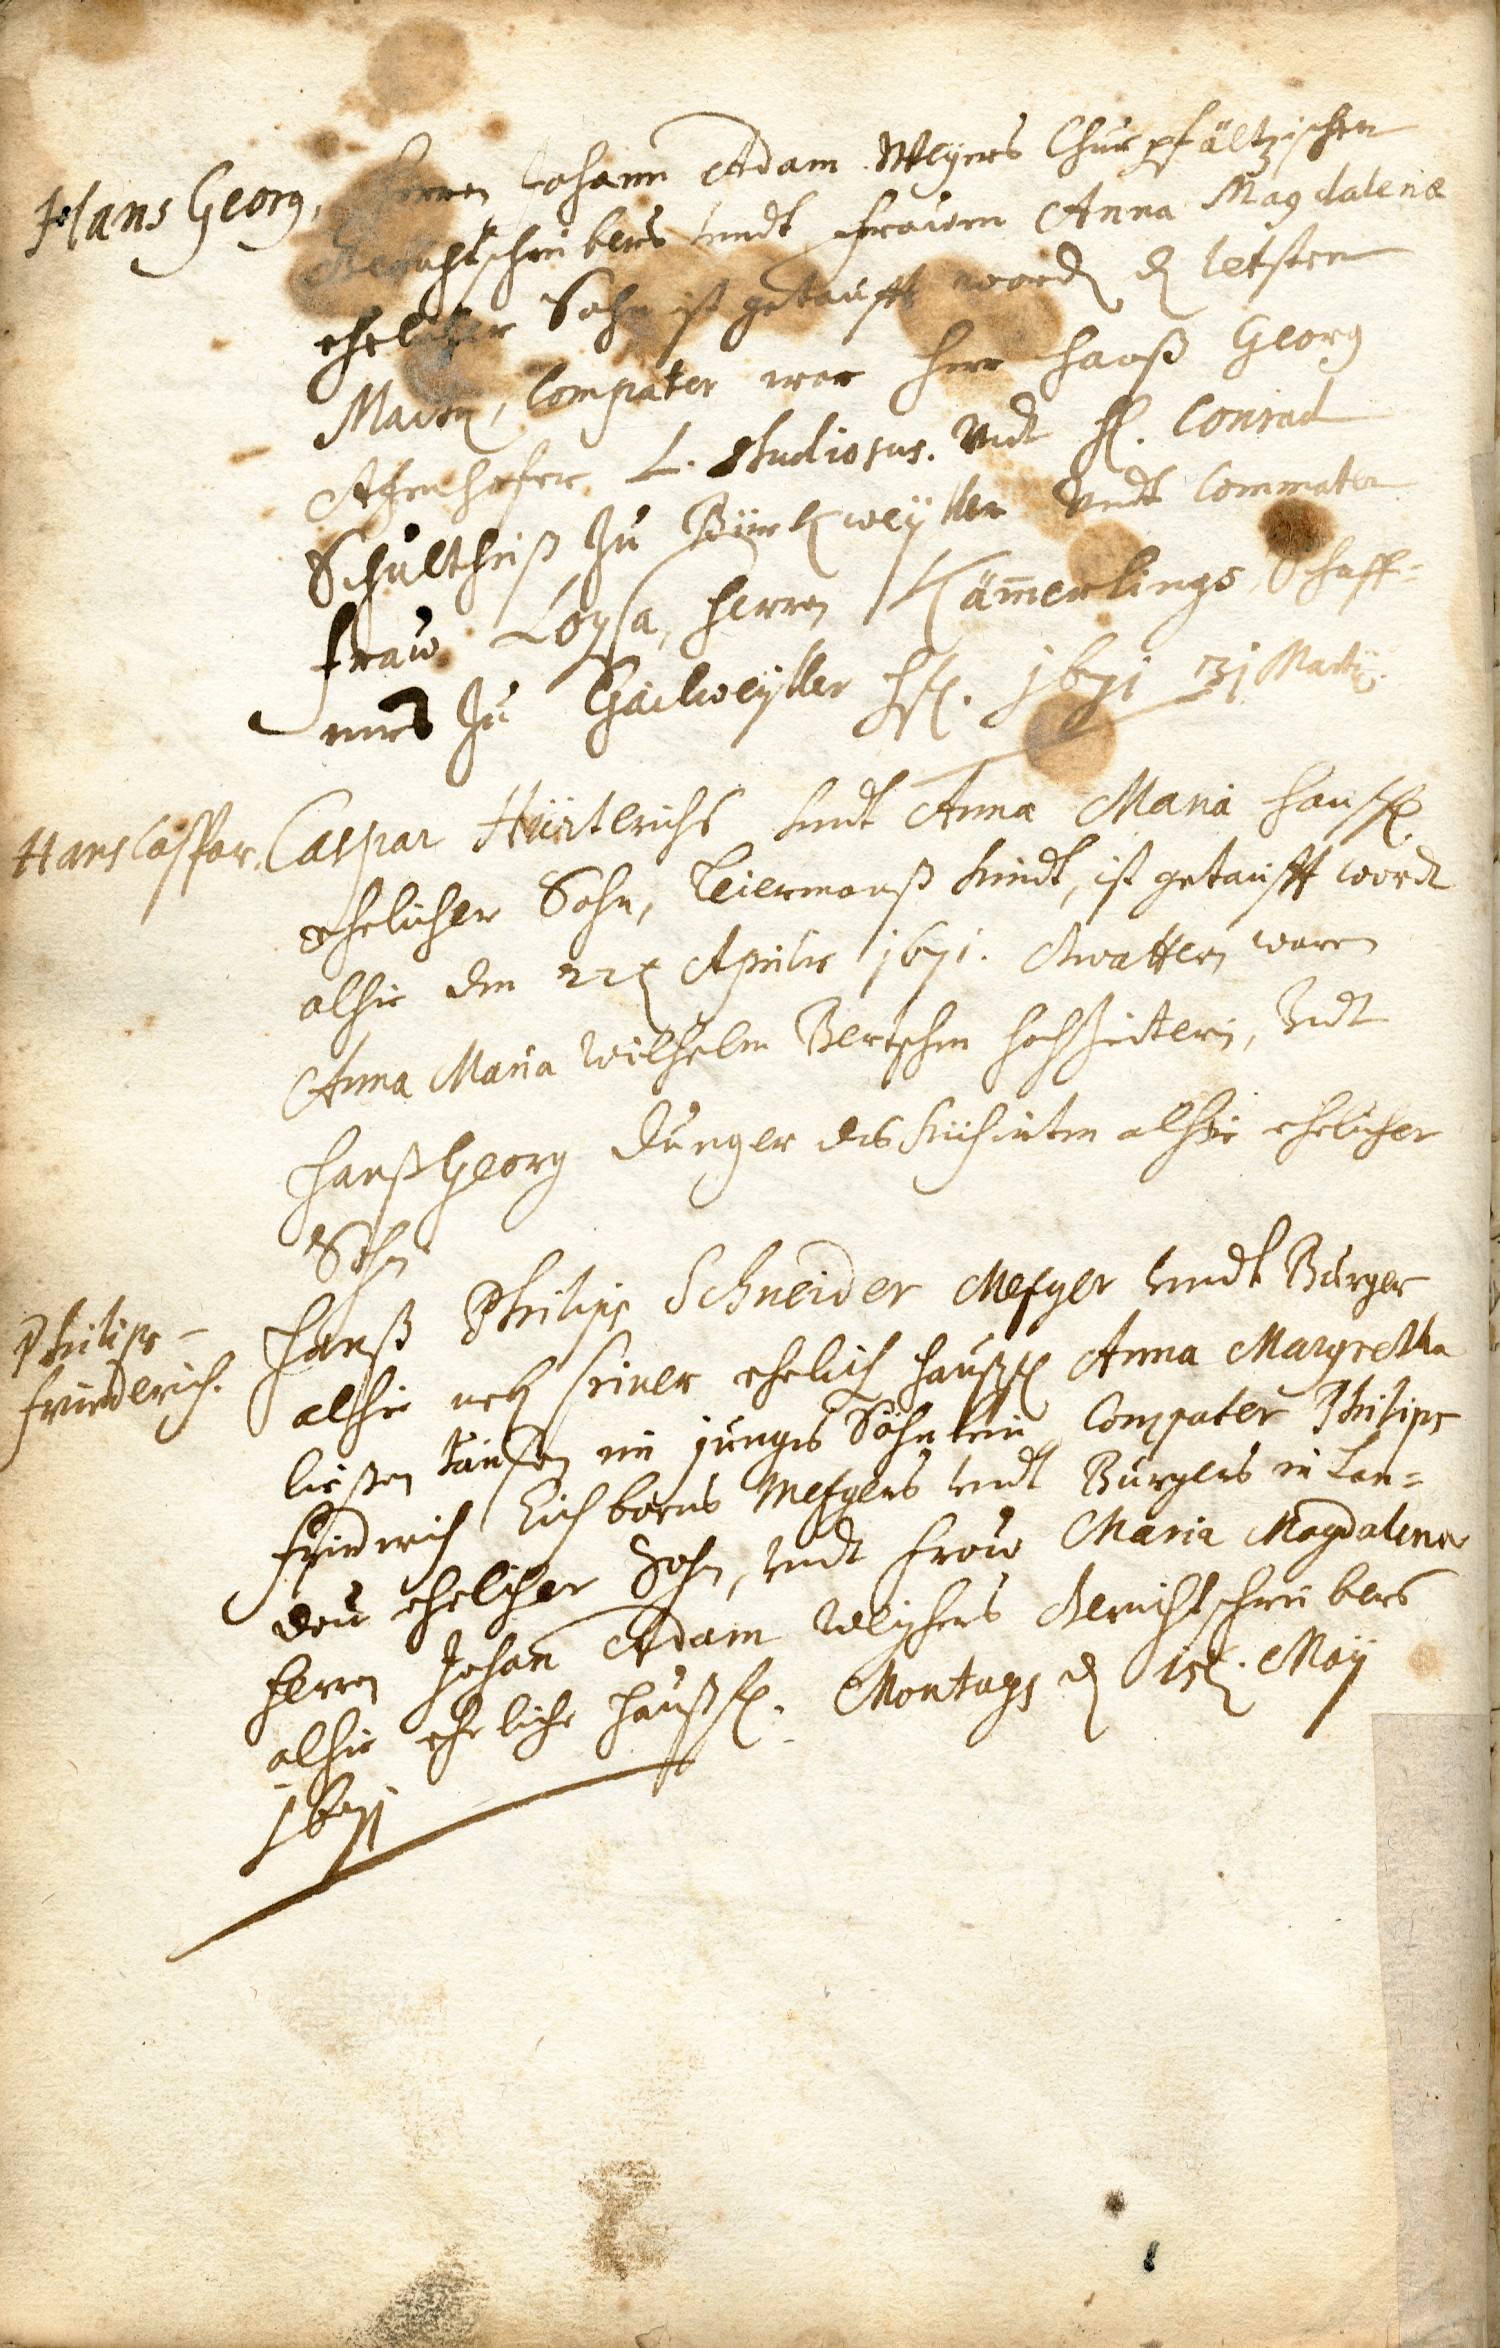 Hans Georg, Herren Johann Adam Weyers Churpfältzischen
Gerichtschreibers undt frawen Anna Magdalenæ
ehelicher Sohn ist getaufft word d letsten
Martij, Compater war herr hanß Georg
L. Studiosus. Undt H. Conrad
Schultheiß zu Bürkweyller Undt Commater
fraw Loysa, herren Kämmerlings, Schaff-
ners zu Gailweyller hf. 1671 31 Martij.
Hans Caspar. Caspar Hürterichs undt Anna Maria haußf
ehelicher Sohn, kindt, ist getaufft word
alhie den 22t Aprilis 1671. Gvattern waren
Anna Maria Wilhelm Bertschen, Undt
hanß Georg Dunger des alhie ehelicher
Sohn
Philips-
friederich.
Hanß Philips Schneider Metzger undt Burger
alhie neb seiner ehelich haußf Anna Margretha
ließen taufen ein junges Söhnlein Compater Philips
friedrich Eichborns Metzgers undt Burgers in Lan-
dau ehelicher Sohn, undt fraw Maria Magdalena
herren Johan Adam Weyhers Gerichtschreibers
alhie eheliche haußf. Montags d 15t. Maÿ
1671